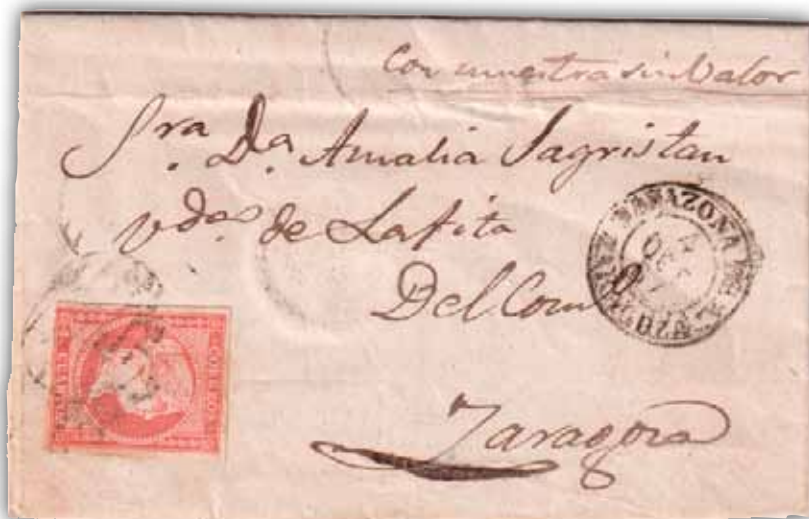 Con muestra sin Valor
Sra Da Amalia Sagristan
vda de Lafita
Del Com
Zaragoza
TARAZONA
CORREOS